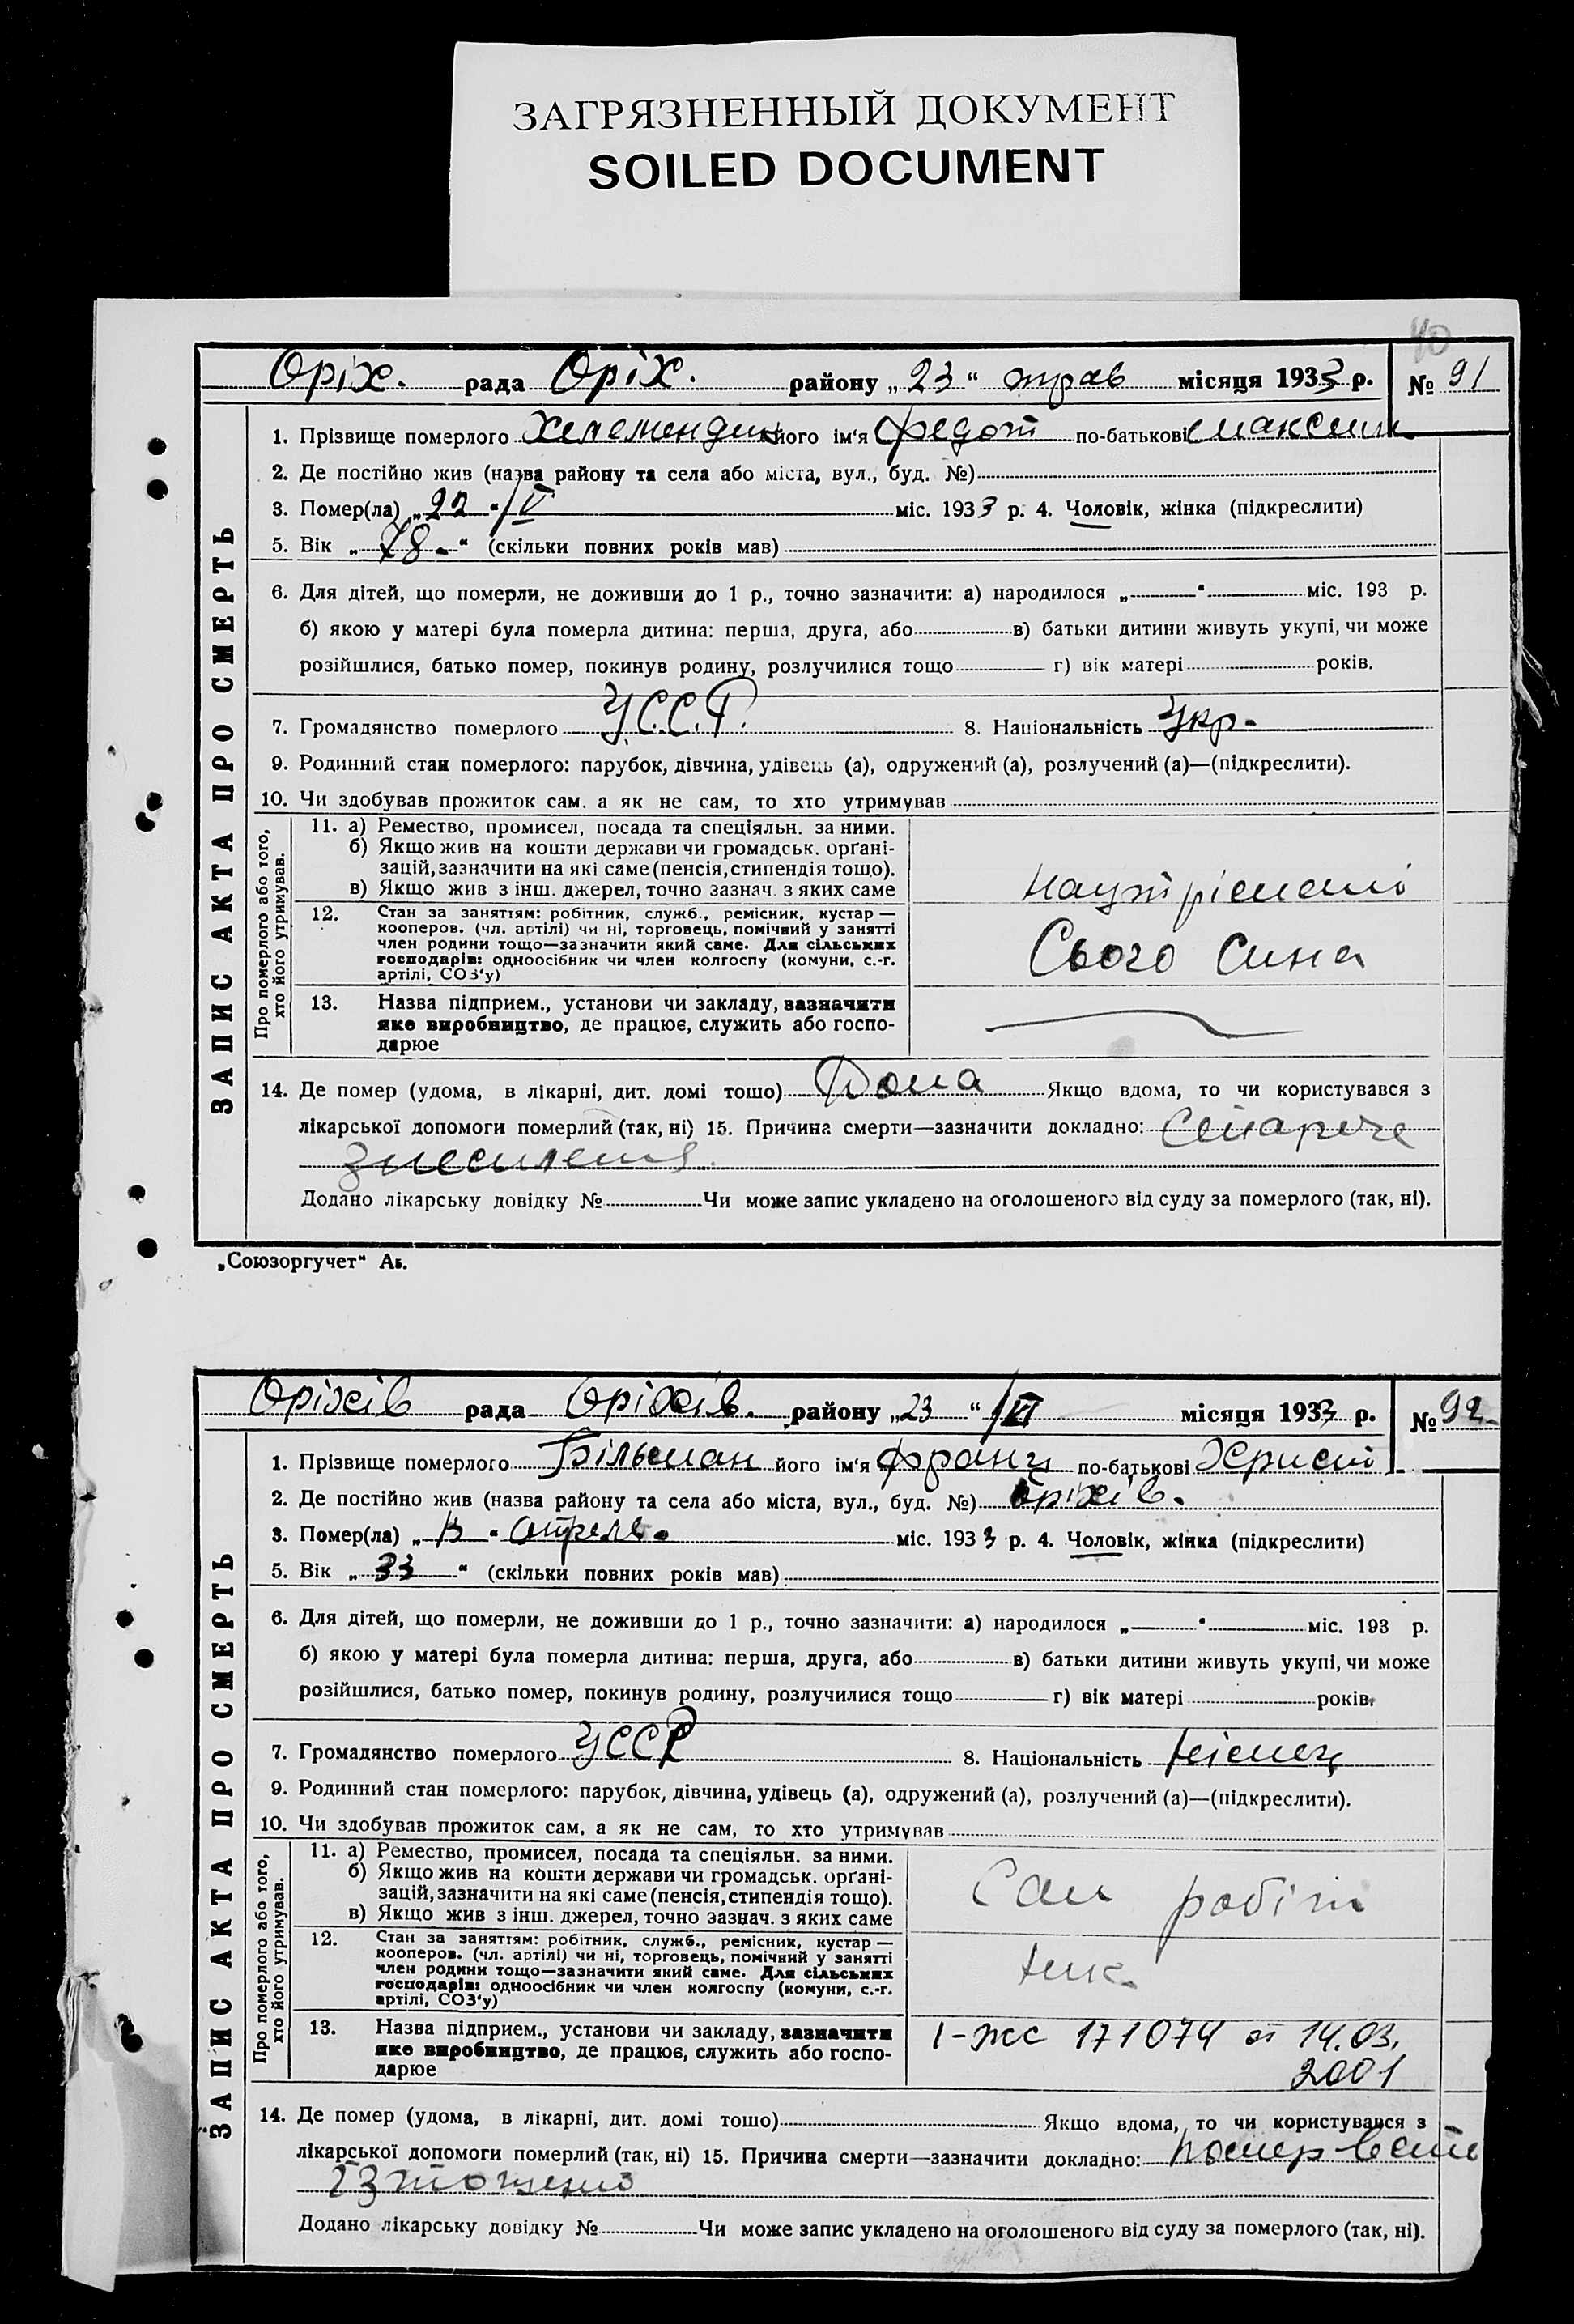 ЗАГРЯЗНЕННЫЙ ДОКУМЕНТ
SOILED DOCUMENT
40
Оріх. рада Оріх. району „23“ трав місяця 1933 р. № 91
ЗАПИС АКТА ПРО СМЕРТЬ
1. Прізвище померлого його ім'я Федот по-батькові Максим
2. Де постійно жив (назва району та села або міста, вул., буд. №)
3. Помер(ла) „22“/V міс. 1933 р. 4. Чоловік, жінка (підкреслити)
5. Вік „78-“ (скільки повних років мав)
6. Для дітей, що померли, не доживши до 1 р., точно зазначити: а) народилося „—“ міс. 193 р.
б) якою у матері була померла дитина: перша, друга, або в) батьки дитини живуть укупі, чи може
розійшлися, батько помер, покинув родину, розлучилися тощо г) вік матері років.
7. Громадянство померлого У.С.С.Р. 8. Національність Укр.
9. Родинний стан померлого: парубок, дівчина, удівець (а), одружений (а), розлучений (а)—(підкреслити).
10. Чи здобував прожиток сам, а як не сам, то хто утримував
Про померлого або того, хто його утримував.
11. а) Ремество, промисел, посада та спеціяльн. за ними.
б) Якщо жив на кошти держави чи громадськ. орґані-
зацій, зазначити на які саме (пенсія, стипендія тощо).
в) Якщо жив з інш. джерел, точно зазнач. з яких саме
12. Стан за заняттям: робітник, служб., ремісник, кустар —
кооперов. (чл. артілі) чи ні, торговець, помічний у занятті
член родини тощо—зазначити який саме. Для сільських
господарів: одноосібник чи член колгоспу (комуни, с.-г.
артілі, СОЗ'у)
Сього сина
13. Назва підприєм., установи чи закладу, зазначити
яке виробництво, де працює, служить або госпо-
дарює
14. Де помер (удома, в лікарні, дит. домі тощо) Дома Якщо вдома, то чи користувався з
лікарської допомоги померлий (так, ні) 15. Причина смерти—зазначити докладно: Старече
знесилення.
Додано лікарську довідку № Чи може запис укладено на оголошеного від суду за померлого (так, ні).
„Союзоргучет“ Аб.
Оріхів рада Оріхів. району „23“/VI місяця 1933 р. № 92-
ЗАПИС АКТА ПРО СМЕРТЬ
1. Прізвище померлого його ім'я Франц по-батькові Христі
2. Де постійно жив (назва району та села або міста, вул., буд. №) Оріхів.
3. Помер(ла) міс. 1933 р. 4. Чоловік, жінка (підкреслити)
5. Вік „33“ (скільки повних років мав)
6. Для дітей, що померли, не доживши до 1 р., точно зазначити: а) народилося „—“ міс. 193 р.
б) якою у матері була померла дитина: перша, друга, або в) батьки дитини живуть укупі, чи може
розійшлися, батько помер, покинув родину, розлучилися тощо г) вік матері років.
7. Громадянство померлого УССР 8. Національність Німець
9. Родинний стан померлого: парубок, дівчина, удівець (а), одружений (а), розлучений (а)—(підкреслити).
10. Чи здобував прожиток сам, а як не сам, то хто утримував
Про померлого або того, хто його утримував.
11. а) Ремество, промисел, посада та спеціяльн. за ними.
б) Якщо жив на кошти держави чи громадськ. орґані-
зацій, зазначити на які саме (пенсія, стипендія тощо).
в) Якщо жив з інш. джерел, точно зазнач. з яких саме
Сам робіт
12. Стан за заняттям: робітник, служб., ремісник, кустар —
кооперов. (чл. артілі) чи ні, торговець, помічний у занятті
член родини тощо—зазначити який саме. Для сільських
господарів: одноосібник чи член колгоспу (комуни, с.-г.
артілі, СОЗ'у)
ник
13. Назва підприєм., установи чи закладу, зазначити
яке виробництво, де працює, служить або госпо-
дарює
I-ЖС 171074 от 14.03.
2001
14. Де помер (удома, в лікарні, дит. домі тощо) Якщо вдома, то чи користувався з
лікарської допомоги померлий (так, ні) 15. Причина смерти—зазначити докладно: помер
Додано лікарську довідку № Чи може запис укладено на оголошеного від суду за померлого (так, ні).